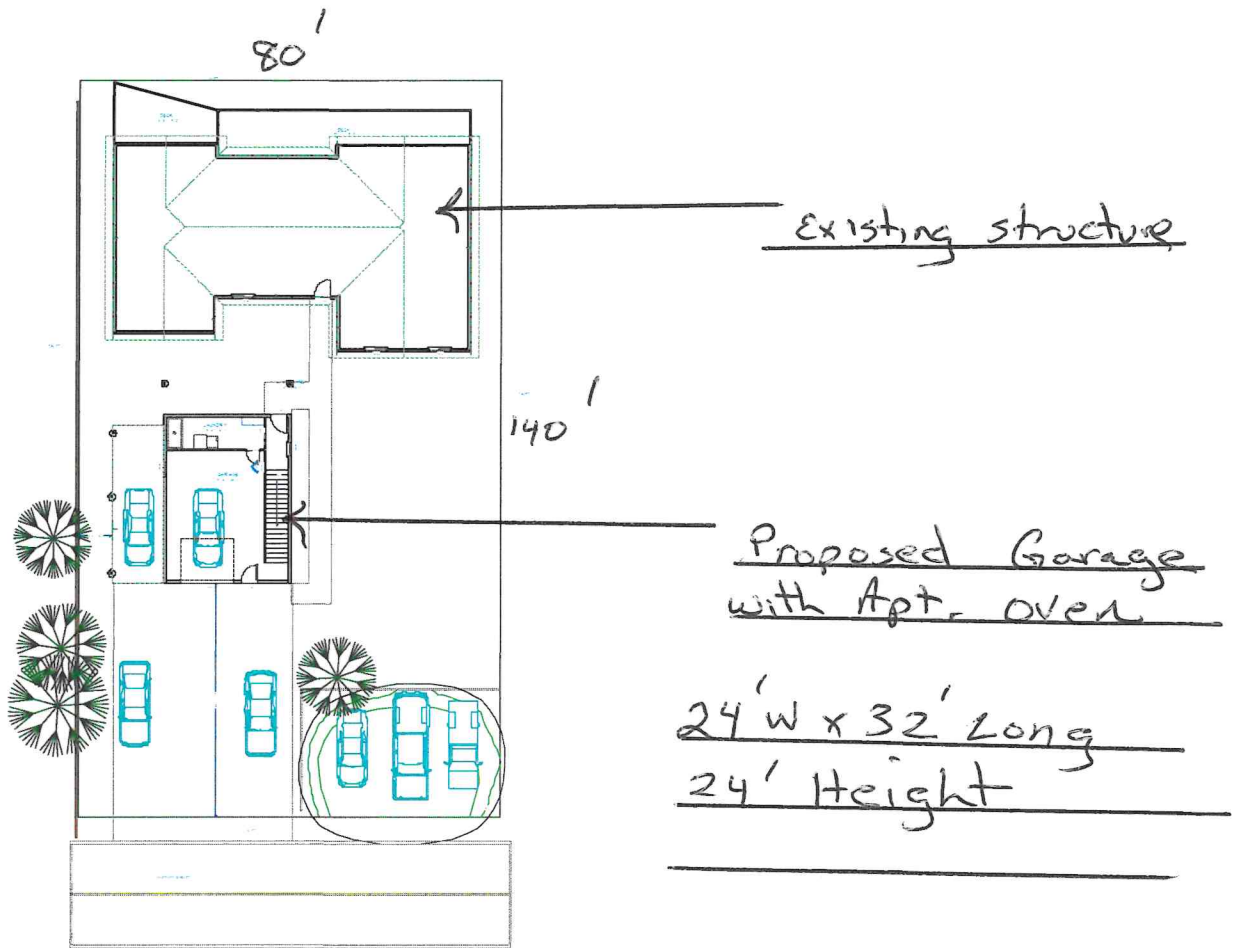 80'
Existing structure
140'
Proposed Garage
with Apt. over
24' W x 32' Long
24' Height